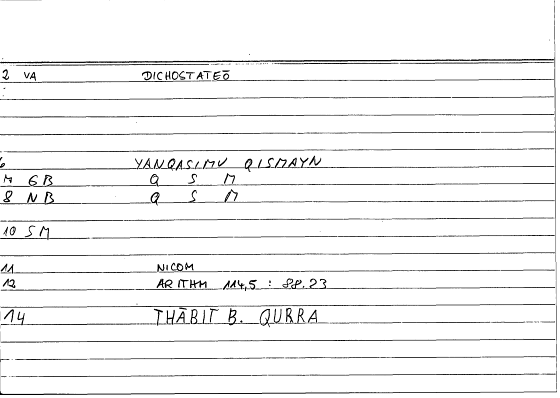 2 VA DICHOSTATEŌ
6 YANQASIMU QISMAYN
M GB Q S M
8 NB Q S M
10 SM
11 NICOM
12 ARITHM 114,5 : 88.23
14 THĀBIT B. QURRA